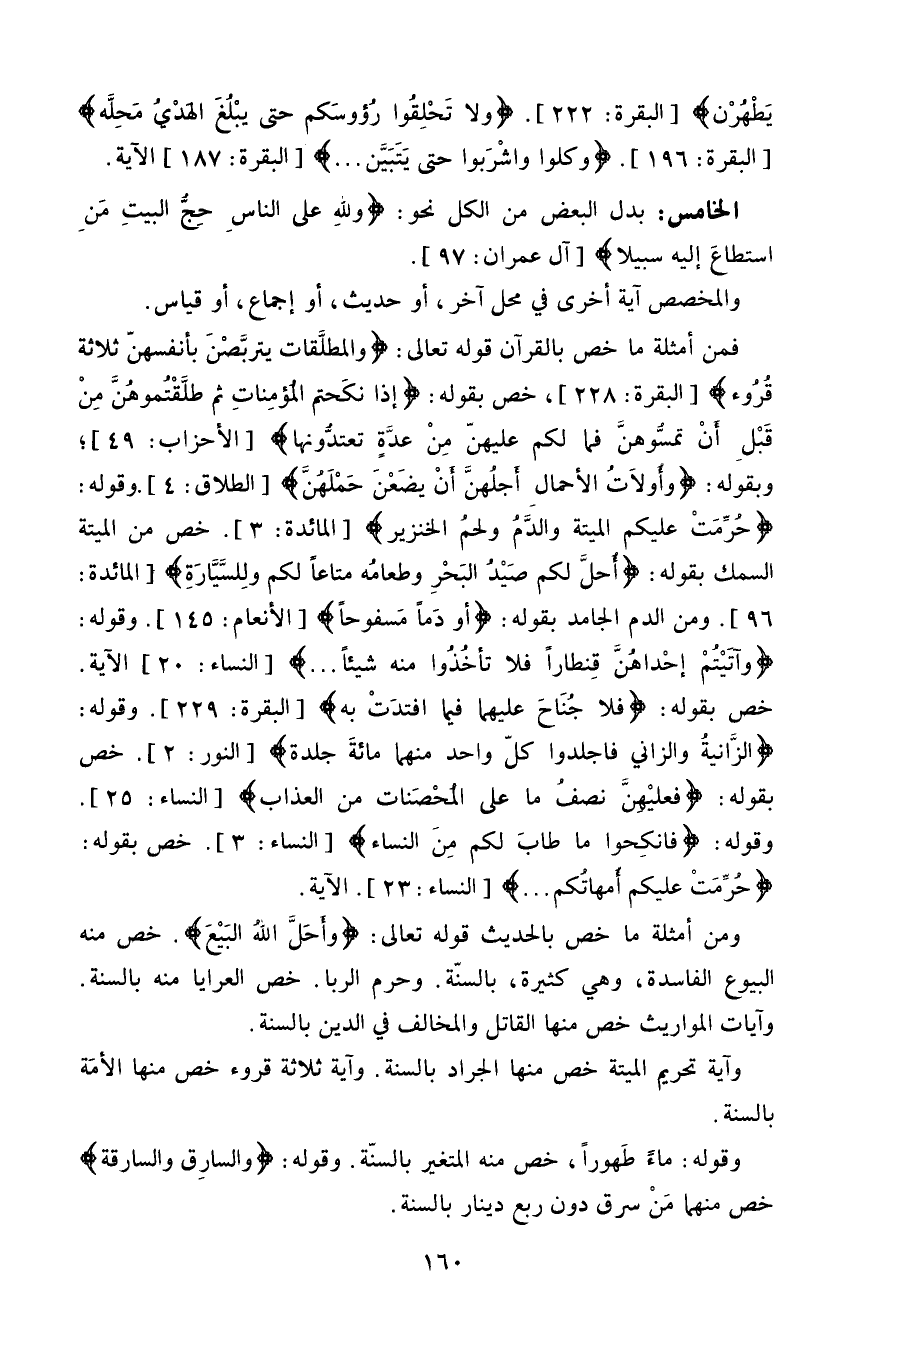 يَطْهُرْن﴾ [ البقرة: ٢٢٢ ]. ﴿ولا تَحْلِقُوا رُؤوسَكم حتى يبْلُغَ الهَدْيُ مَحِلَّه﴾
[ البقرة: ١٩٦ ]. ﴿وكلوا واشْرَبوا حتى يَتَبَيَّن...﴾ [ البقرة: ١٨٧ ] الآية.
الخامس: بدل البعض من الكل نحو: ﴿وللهِ على الناسِ حِجُّ البيتِ مَنِ
استطاعَ إليه سبيلا﴾ [ آل عمران: ٩٧ ].
والمخصص آية أخرى في محل آخر، أو حديث، أو إجماع، أو قياس.
فمن أمثلة ما خص بالقرآن قوله تعالى: ﴿والمطلَّقات يتربَّصْنَ بأنفسهنّ ثلاثة
قُرُوء﴾ [ البقرة: ٢٢٨ ]، خص بقوله: ﴿إذا نكَحتم المُؤمِناتِ ثم طلَّقْتُموهُنَّ مِنْ
قَبْلِ أَنْ تمسُّوهنَّ فما لكم عليهنّ مِنْ عدَّةٍ تعتدُّونها﴾ [ الأحزاب: ٤٩ ]؛
وبقوله: ﴿وأُولاَتُ الأحمالِ أَجلُهنَّ أَنْ يضَعْنَ حَمْلَهُنَّ﴾ [ الطلاق: ٤ ].وقوله:
﴿حُرِّمَتْ عليكم الميتة والدَّمُ ولحمُ الخنزير﴾ [ المائدة: ٣ ]. خص من الميتة
السمك بقوله: ﴿أُحلَّ لكم صَيْدُ البَحْرِ وطعامُه متاعاً لكم ولِلسَّيَّارَةِ﴾ [ المائدة:
٩٦ ]. ومن الدم الجامد بقوله: ﴿أو دَماً مَسفوحاً﴾ [ الأنعام: ١٤٥ ]. وقوله:
﴿وآتَيْتُمْ إحْداهُنَّ قِنطاراً فلا تأخُذُوا منه شيئاً...﴾ [ النساء: ٢٠ ] الآية.
خص بقوله: ﴿فلا جُنَاحَ عليهما فيما افتدَتْ به﴾ [ البقرة: ٢٢٩ ]. وقوله:
﴿الزَّانيةُ والزاني فاجلدوا كلّ واحد منهما مائةَ جلدة﴾ [ النور: ٢ ]. خص
بقوله: ﴿فعليْهِنَّ نصفُ ما على المُحْصَنات من العذاب﴾ [ النساء: ٢٥ ].
وقوله: ﴿فانكِحوا ما طابَ لكم مِنَ النساء﴾ [ النساء: ٣ ]. خص بقوله:
﴿حُرِّمَتْ عليكم أُمهاتُكم...﴾ [ النساء: ٢٣ ]. الآية.
ومن أمثلة ما خص بالحديث قوله تعالى: ﴿وأَحَلَّ اللهُ البَيْعَ﴾. خص منه
البيوع الفاسدة، وهي كثيرة، بالسنّة. وحرم الربا. خص العرايا منه بالسنة.
وآيات المواريث خص منها القاتل والمخالف في الدين بالسنة.
وآية تحريم الميتة خص منها الجراد بالسنة. وآية ثلاثة قروء خص منها الأمَة
بالسنة.
وقوله: ماءً طَهوراً، خص منه المتغير بالسنّة. وقوله: ﴿والسارِق والسارقة﴾
خص منهما مَنْ سرق دون ربع دينار بالسنة.
١٦٠